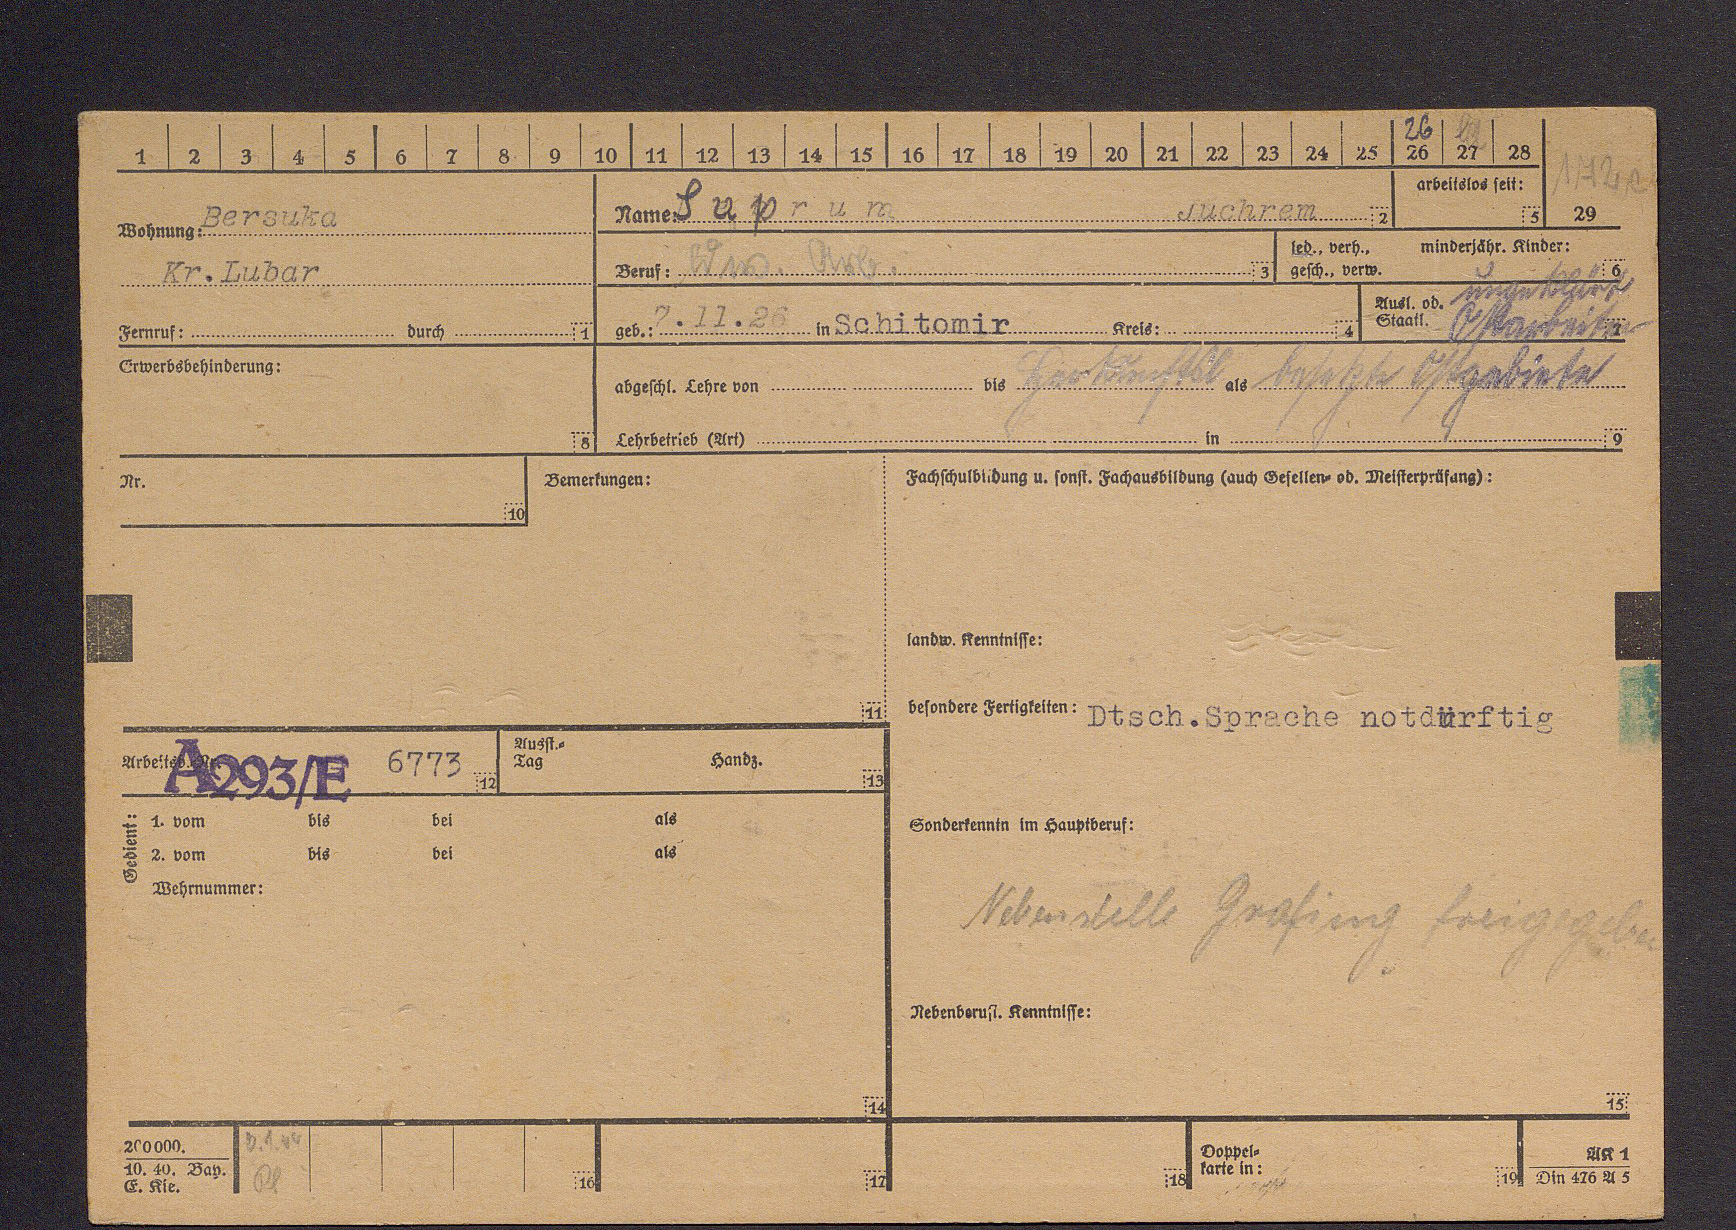 26
1 2 3 4 5 6 7 8 9 10 11 12 13 14 15 16 17 18 19 20 21 22 23 24 25 26 27 28
Wohnung: Bersuka
Kr. Lubar
Fernruf: durch 1
Name: Saprum Juchrem 2
arbeitslos seit: 5
29
Beruf: 3
led., verh., gesch., verw.
minderjähr. Kinder: 6
geb.: 7.11.26 in Schitomir Kreis: 4
Ausl. od. Staatl. ungeklärt
Ostarbeiter 7
Erwerbsbehinderung: 8
abgeschl. Lehre von bis als
Herkunftsl besetzte Ostgebiete
Lehrbetrieb (Art) in 9
Nr. 10
Bemerkungen: 11
Fachschulbildung u. sonst. Fachausbildung (auch Gesellen- od. Meisterprüfung):
landw. Kenntnisse:
besondere Fertigkeiten: Dtsch.Sprache notdürftig
Arbeitsb.-Nr. A293/E 6773 12
Ausst.-Tag Handz. 13
Gedient: 1. vom bis bei als
2. vom bis bei als
Wehrnummer:
14
Sonderkenntn im Hauptberuf:
Nebenstelle Grafing freigegeben
Nebenberufl. Kenntnisse:
15
200000.
10. 40. Bay.
E. Kie.
16
17
18
Doppelkarte in: 19
AK 1
Din 476 A 5